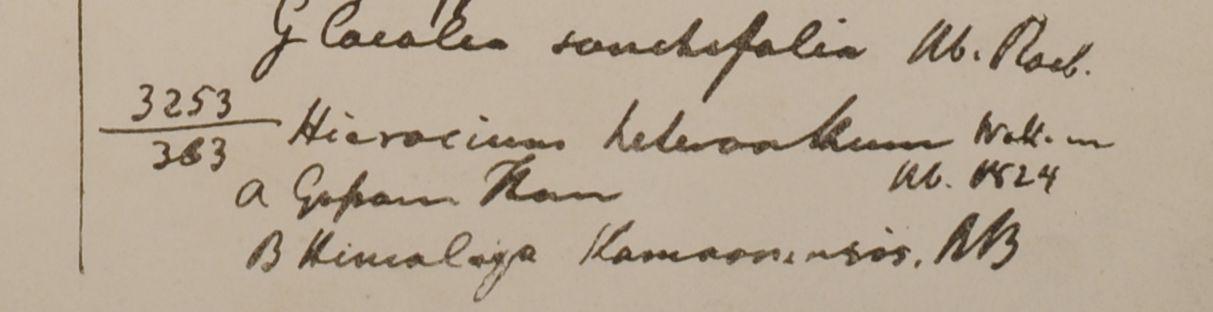 G Cacalia sonchifolia Hb. Roxb.
3253
363
Hieracium heteranthum Wall. in
Hb. 1824
a Gossam Than
B Himalaya Kamaonensis. RB